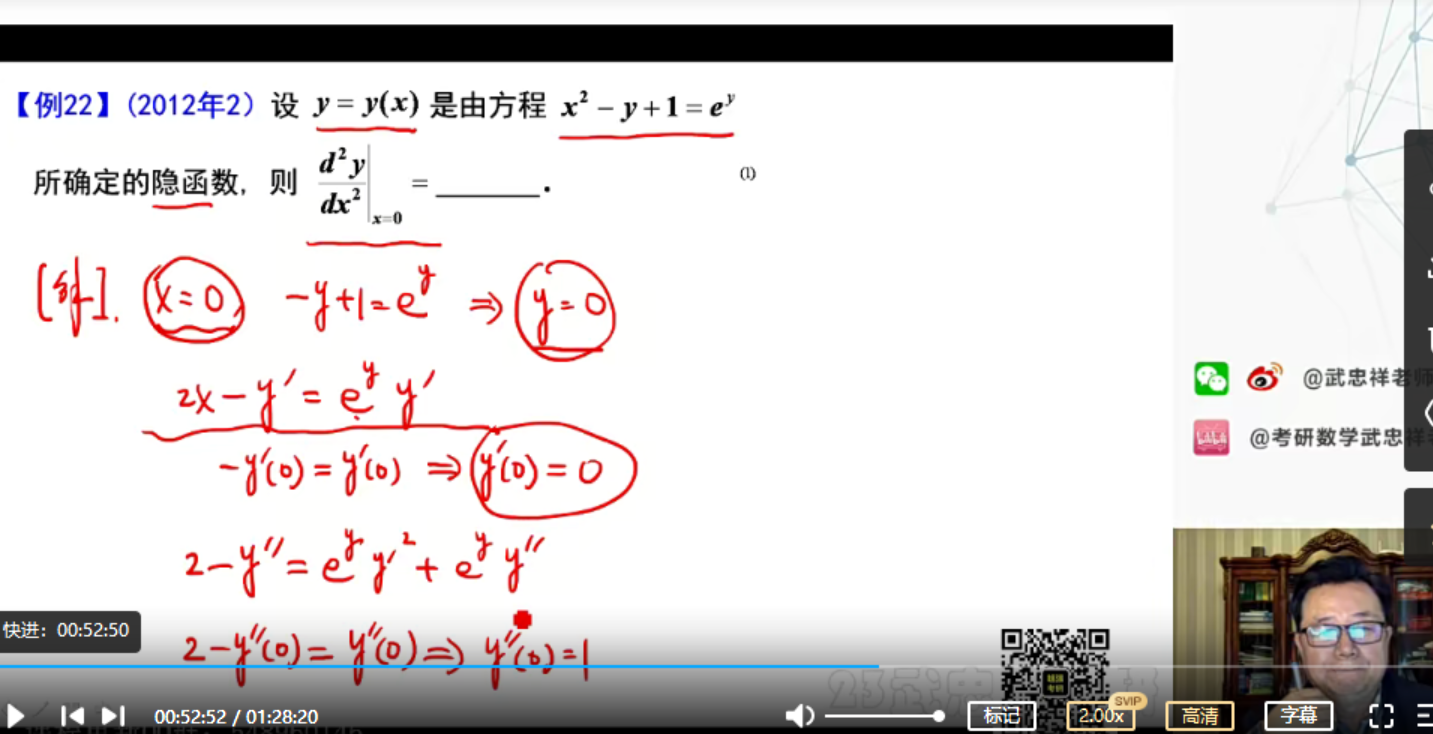 【例22】(2012年2) 设 y = y(x) 是由方程 x² − y + 1 = eʸ
所确定的隐函数, 则 d²y/dx²|ₓ₌₀ = ______.
(1)
[解]. x=0 -y+1=eʸ ⇒ y=0
2x-y′=eʸy′
-y′(0)=y′(0) ⇒ y′(0)=0
2-y″=eʸy′²+eʸy″
2-y″(0)=y″(0) ⇒ y″(0)=1
@武忠祥老师
@考研数学武忠祥
快进：00:52:50
00:52:52 / 01:28:20
标记
2.00x
SVIP
高清
字幕